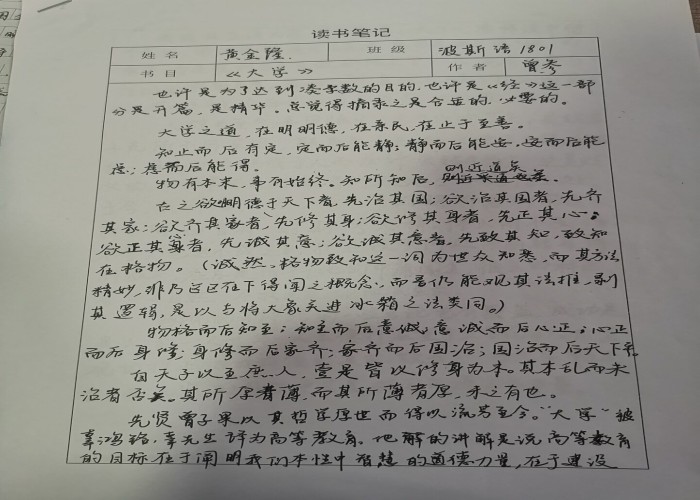 读书笔记
姓名 黄金隆. 班级 波斯语1801
书目 《大学》 作者 曾参
也许是为了达到凑字数的目的,也许是《经》这一部
分是开篇,是精华。总觉得摘录之是合适的,必要的。
大学之道,在明明德,在亲民,在止于至善。
知止而后有定,定而后能静;静而后能安,安而后能
虑;虑而后能得。
物有本末,事有始终。知所知后,则近道矣
古之欲明明德于天下者,先治其国;欲治其国者,先齐
其家;欲齐其家者,先修其身;欲修其身者,先正其心;
欲正其心者,先诚其意;欲诚其意者,先致其知,致知
在格物。(诚然,格物致知这一词为世众知悉,而其方法
精妙,非乃区区在下得闻之概念,而吾仍能观其法推,剖
其逻辑,是以与将大象关进冰箱之法类同。)
物格而后知至;知至而后意诚;意诚而后心正;心正
而后身修;身修而后家齐;家齐而后国治;国治而后天下平
自天子以至庶人,壹是皆以修身为本。其本乱而末
治者否矣。其所厚者薄,而其所薄者厚,未之有也。
先贤曾子果以其哲学厚世而得以流芳至今。"大学"被
辜鸿铭,辜先生译为高等教育。他解的讲解是说高等教育
的目标在于阐明我们本性中智慧的道德力量,在于建设